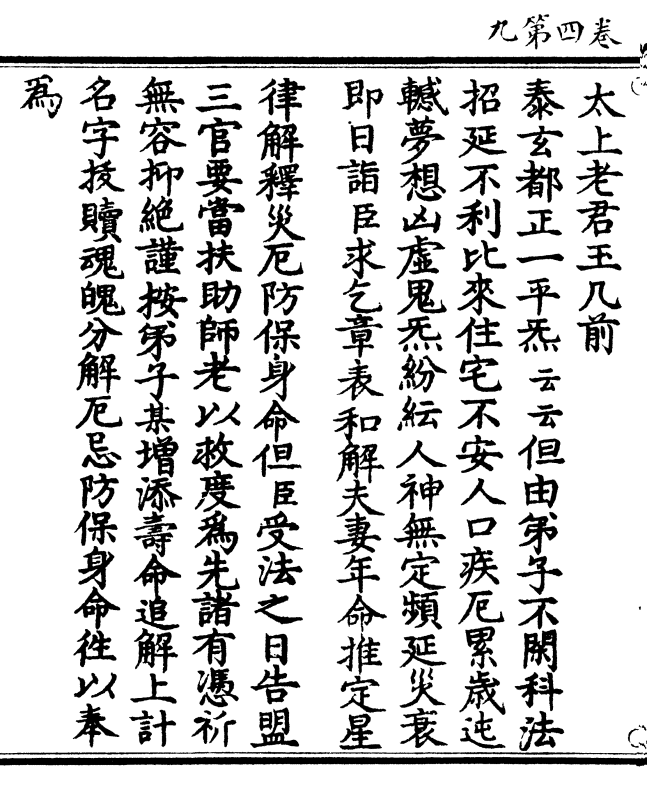 卷四第九
太上老君玉几前
泰玄都正一平炁云云但由弟子不閑科法
招延不利比來住宅不安人口疾厄累歲迍
轗夢想凶虛鬼炁紛紜人神無定頻延災衰
即日詣臣求乞章表和解夫妻年命推定星
律解釋災厄防保身命但臣受法之日告盟
三官要當扶助師老以救度爲先諸有憑祈
無容抑絕謹按弟子某增添壽命追解上計
名字拔贖魂魄分解厄忌防保身命徃以奉
爲